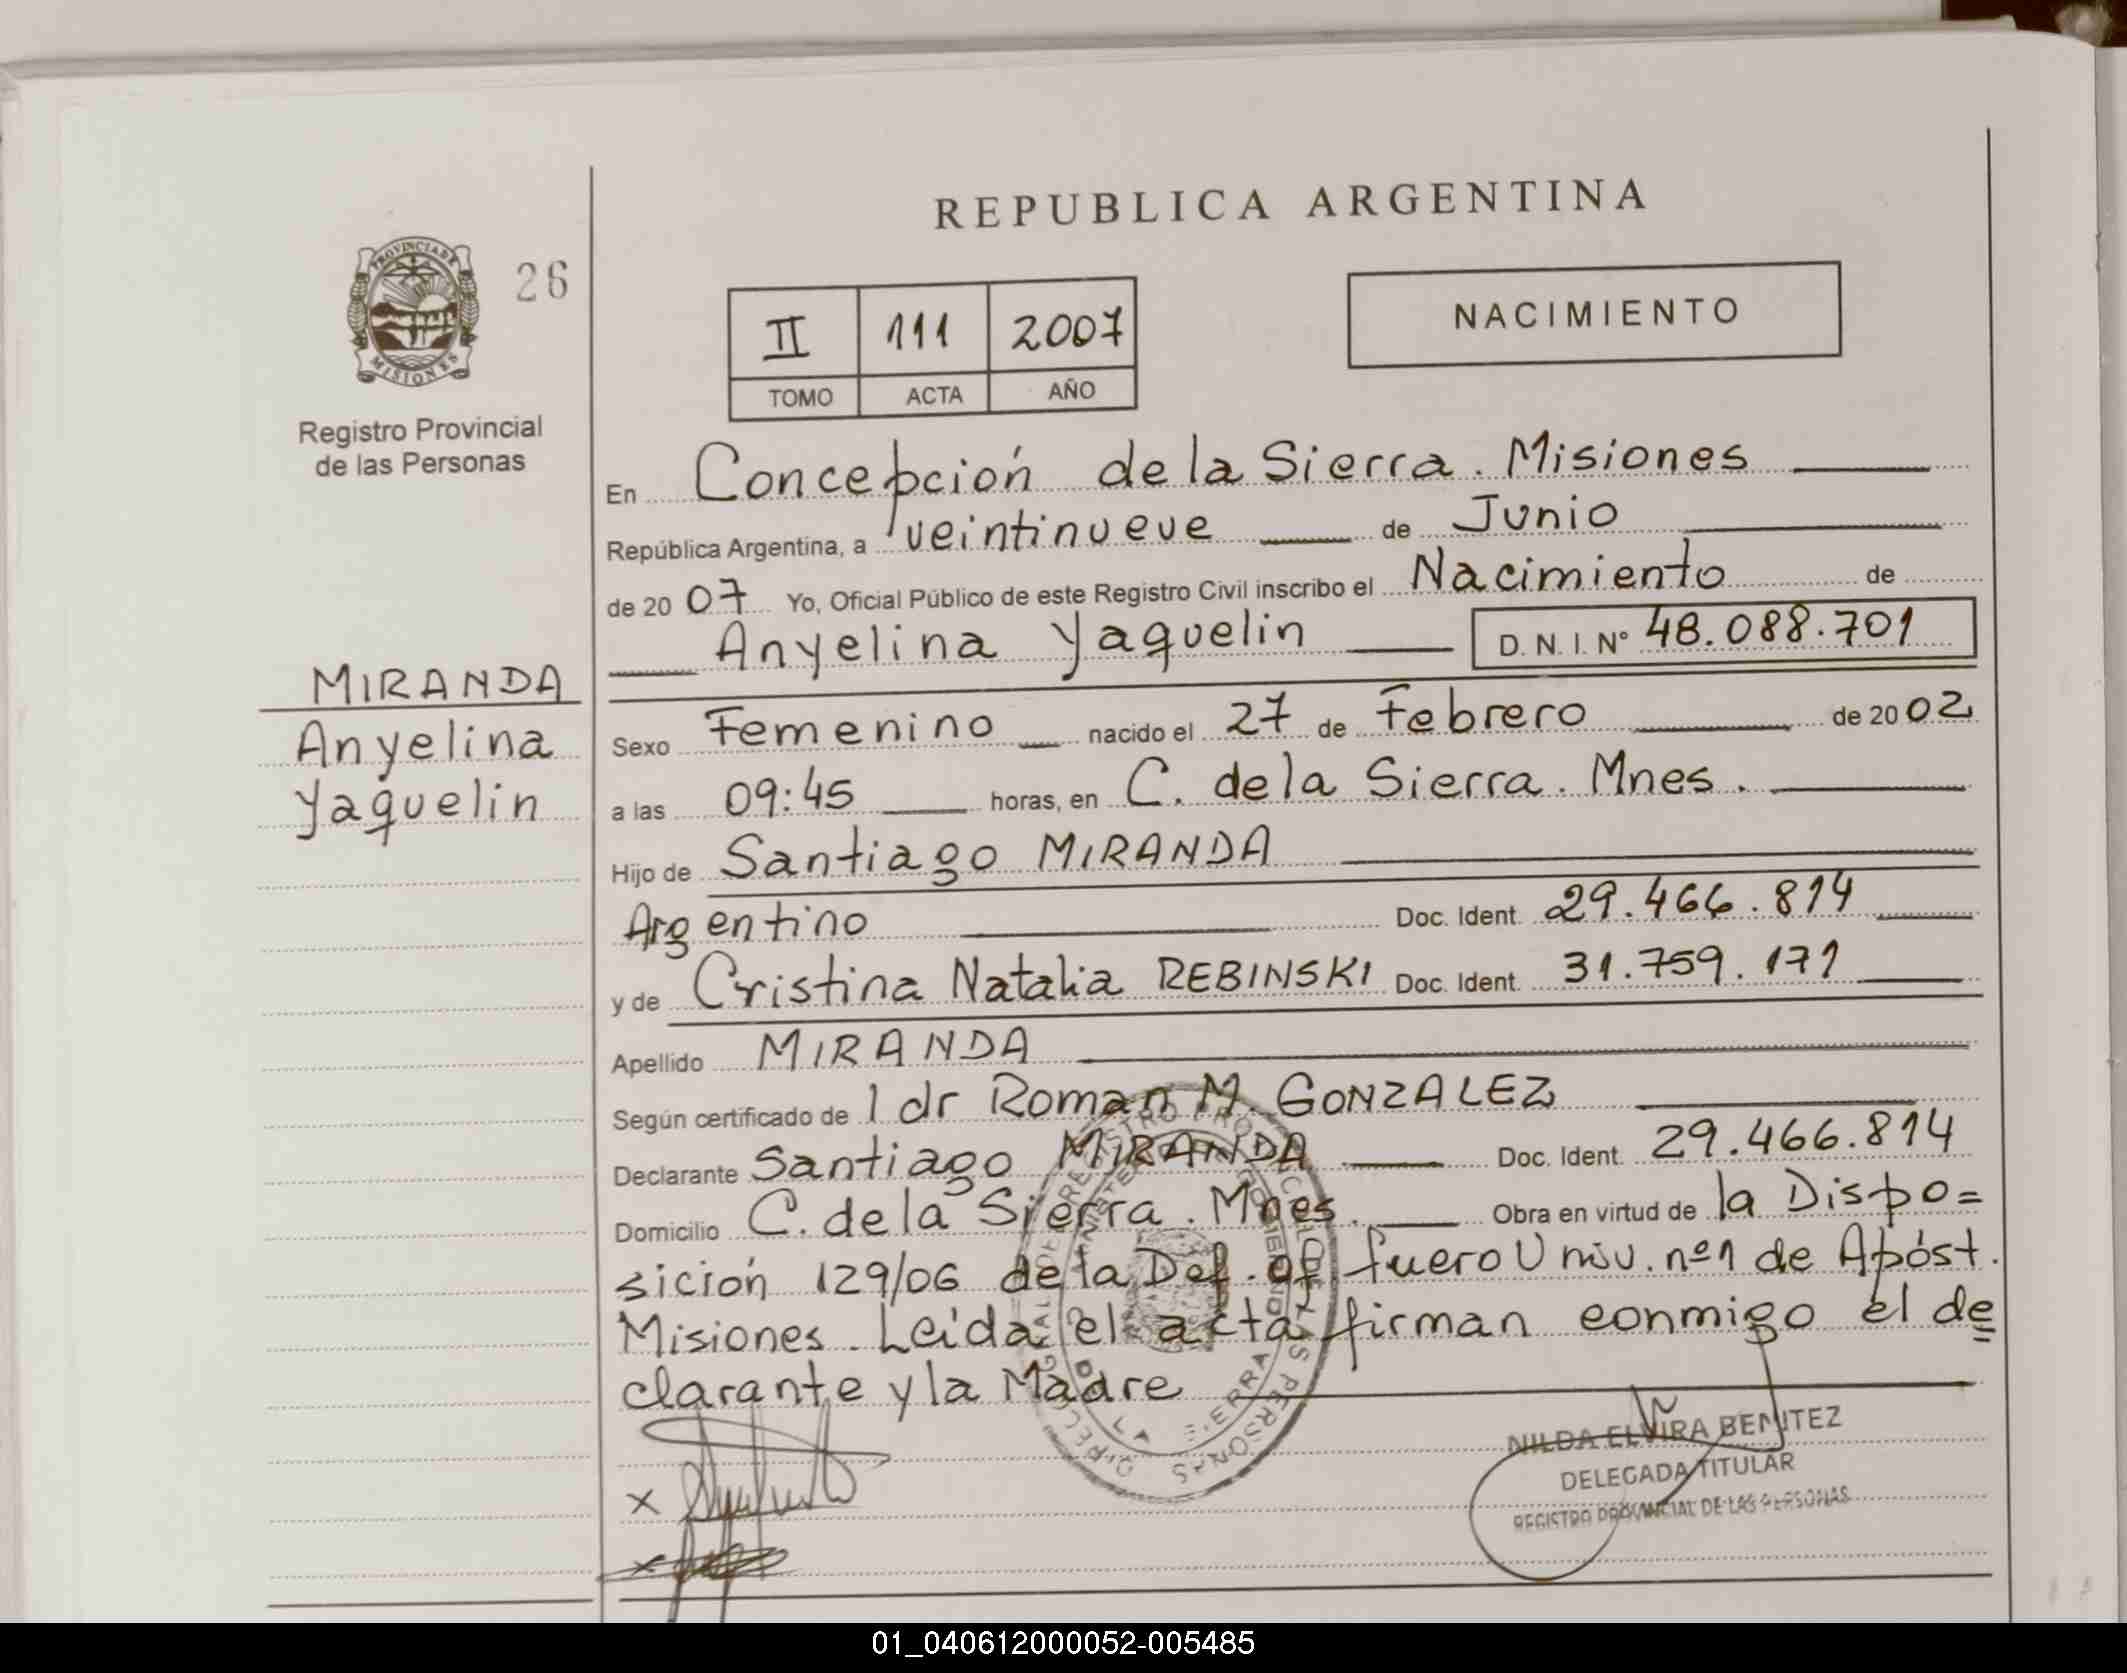 REPUBLICA ARGENTINA
PROVINCIA DE
MISIONES
26
Registro Provincial
de las Personas
II 111 2007
TOMO ACTA AÑO
NACIMIENTO
En Concepción de la Sierra. Misiones
República Argentina, a veintinueve de Junio
de 2007 Yo, Oficial Público de este Registro Civil inscribo el Nacimiento de
Anyelina Yaquelin D. N. I. Nº 48.088.701
MIRANDA
Anyelina
Yaquelin
Sexo Femenino nacido el 27 de Febrero de 2002
a las 09:45 horas, en C. de la Sierra. Mnes.
Hijo de Santiago MIRANDA
Argentino Doc. Ident. 29.466.814
y de Cristina Natalia REBINSKI Doc. Ident. 31.759.171
Apellido MIRANDA
Según certificado de 1 dr Roman M. GONZALEZ
Declarante Santiago MIRANDA Doc. Ident. 29.466.814
Domicilio C. de la Sierra. Mnes. Obra en virtud de la Dispo=
sición 129/06 de la Def. of fuero Univ. nº1 de Apóst.
Misiones. Leída el acta firman conmigo el de
clarante y la Madre
NILDA ELVIRA BENITEZ
DELEGADA TITULAR
REGISTRO PROVINCIAL DE LAS PERSONAS
01_040612000052-005485